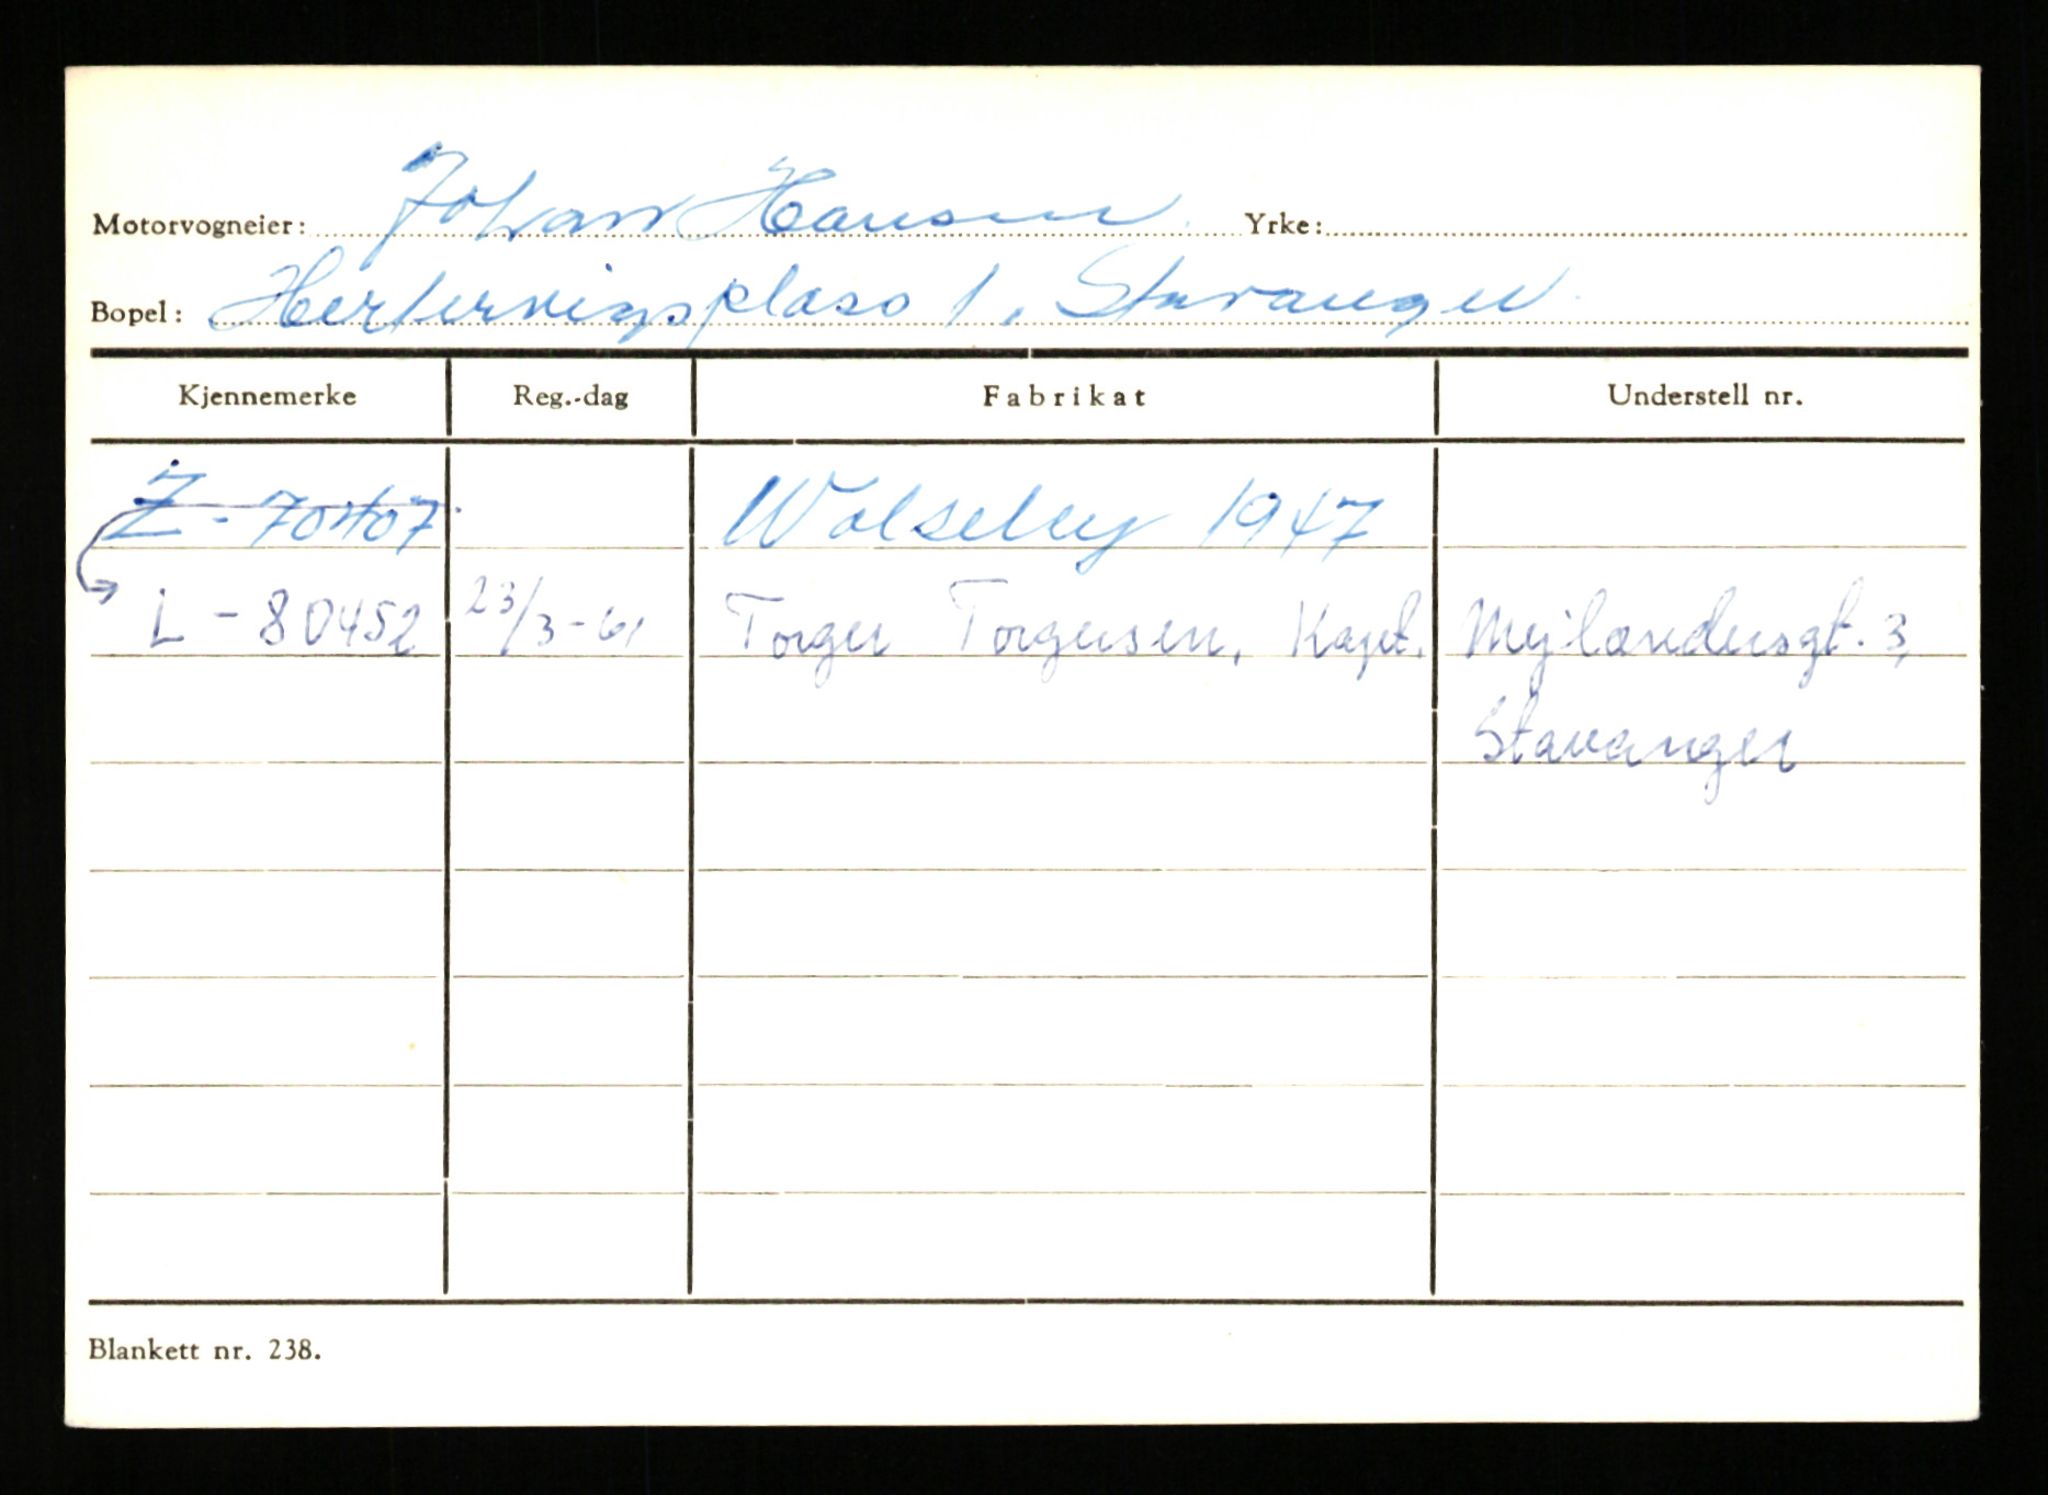 Motorvogneier: Johan Hansen Yrke:
Bopel: Hertervigsplass 1, Stavanger
Kjennemerke Reg.-dag Fabrikat Understell nr.
Wolseley 1947
L - 80452 23/3-61 Torger Torgersen, Kapt. Mejlændersgt. 3,
Stavanger
Blankett nr. 238.